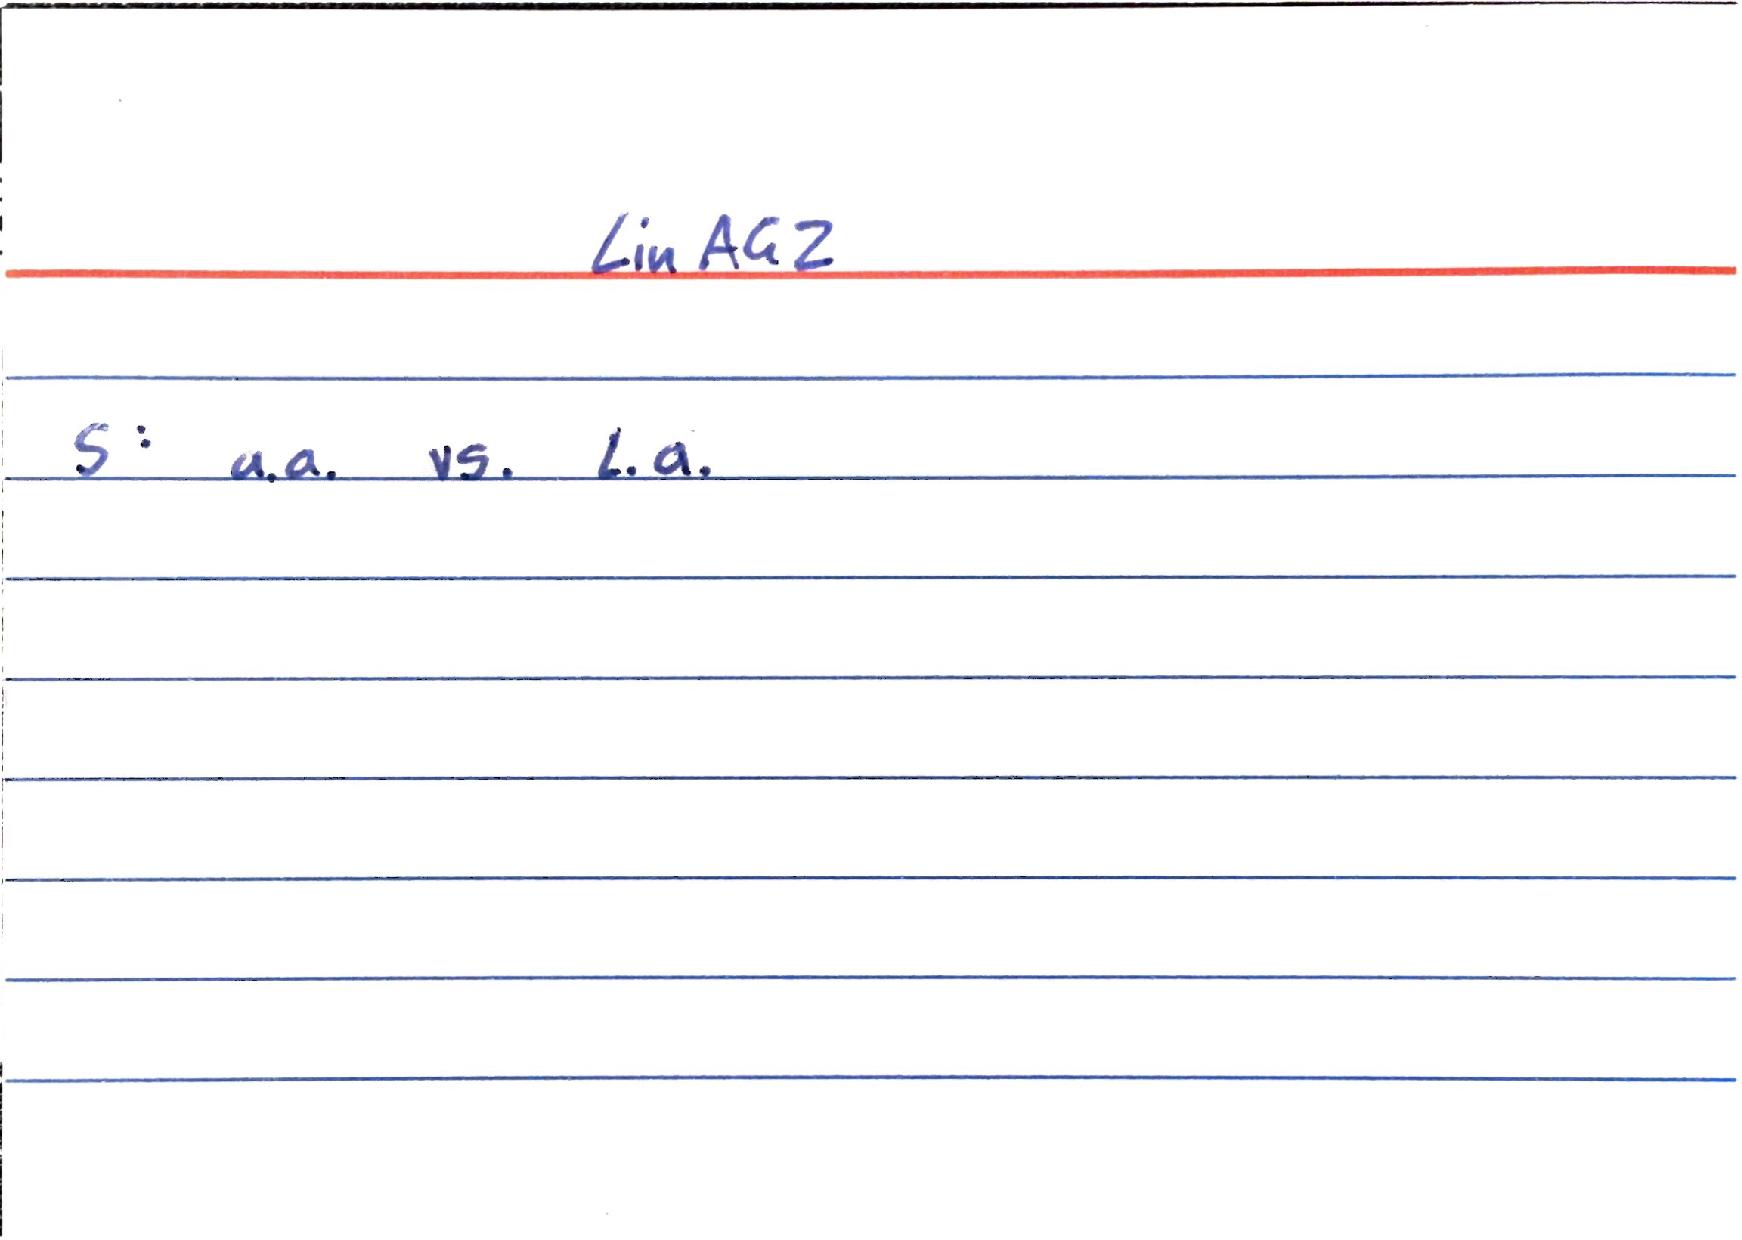 Lin AG 2
S: u.a. vs. l.a.